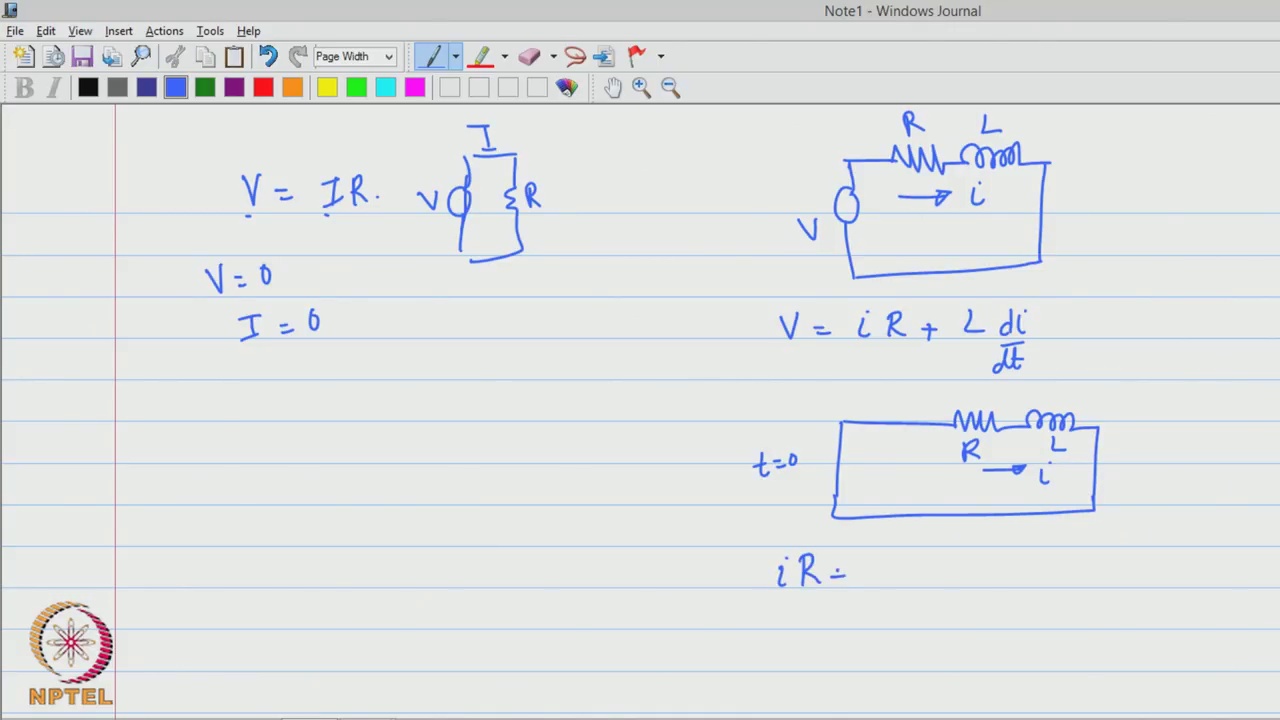 Note1 - Windows Journal
File Edit View Insert Actions Tools Help
Page Width
B I
V = IR.
I
V
R
V = 0
I = 0
R L
i
V
V = i R + L di/dt
t=0
R L
i
i R =
NPTEL